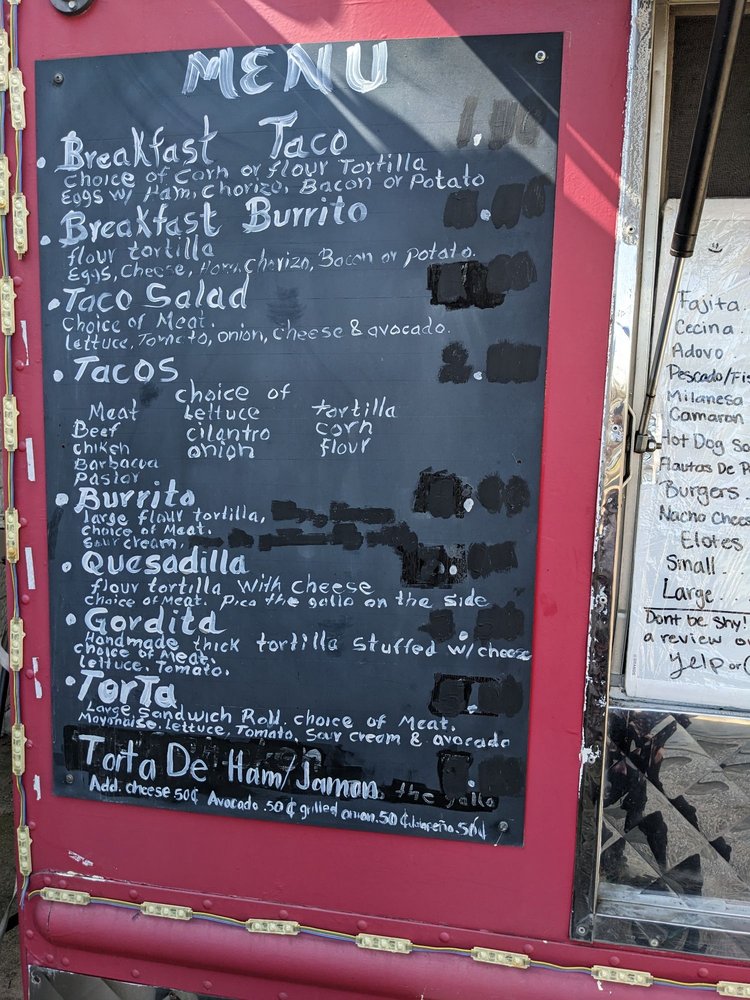 MENU
Breakfast Taco
Choice of Corn or flour Tortilla
Eggs w/ Ham, Chorizo, Bacon or Potato
Breakfast Burrito
flour tortilla
Eggs, Cheese, Ham, Chorizo, Bacon or Potato.
Taco Salad
Choice of Meat.
lettuce, Tomato, onion, cheese & avocado.
Tacos
choice of
Meat Lettuce tortilla
Beef cilantro corn
chiken onion flour
Barbacua
Pastor
Burrito
large flour tortilla,
choice of Meat.
Sour cream,
Quesadilla
flour tortilla with cheese
choice of Meat. Pico the gallo on the side
Gordita
Handmade thick tortilla stuffed w/cheese
choice of Meat.
lettuce, Tomato,
TorTa
Large Sandwich Roll. choice of Meat.
Mayonaise, lettuce, Tomato, Sour cream & avocado
Torta De Ham/Jamon
the gallo
Add. cheese 50¢ Avocado .50¢ grilled onion .50¢ Jalapeño .50¢
Fajita
Cecina
Adovo
Pescado/Fis
Milanesa
Camaron
Hot Dog So
Flautas De P
Burgers
Nacho Chee
Elotes
Small..
Large...
Dont be shy!
a review o
Yelp or(